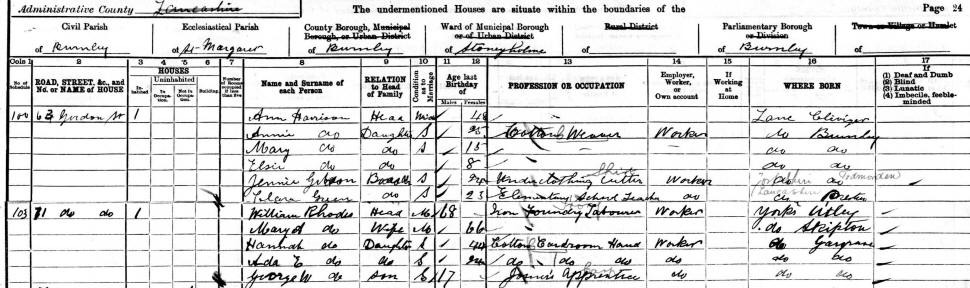 Administrative County Lancashire The undermentioned Houses are situate within the boundaries of the Page 24
Civil Parish Ecclesiastical Parish County Borough, Municipal Borough, or Urban District Ward of Municipal Borough or of Urban District Rural District Parliamentary Borough or Division Town or Village or Hamlet
of Burnley of St Margaret of Burnley of Stoneyholme of of Burnley of
Cols 1 2 3 4 5 6 7 8 9 10 11 12 13 14 15 16 17
No. of Schedule ROAD, STREET, &c., and No. or NAME of HOUSE HOUSES Inhabited Uninhabited In Occupation Not in Occupation Building Number of Rooms occupied if less than five Name and Surname of each Person RELATION to Head of Family Condition as to Marriage Age last Birthday of Males Females PROFESSION OR OCCUPATION Employer, Worker, or Own account If Working at Home WHERE BORN If (1) Deaf and Dumb (2) Blind (3) Lunatic (4) Imbecile, feeble-minded
100 63 Gordon St 1 Ann Harrison Head 48 Lanc Cliviger
Annie do Daughter S 25 Cotton Weaver Worker do Burnley
Mary do do S 15 do do
Elsie do do 8 do do
Jennie Boarder S Underclothing Cutter Worker Todmorden
Clara Green do S 23 Elementary School Teacher do Lancashire Preston
103 71 do do 1 William Rhodes Head M 68 Iron Foundry Labourer Worker Yorks Utley
Mary A do Wife M 66 do Skipton
Hannah do Daughter S 44 Cotton Cardroom Hand Worker do Gargrave
Ada E do do S 24 do do do do do do
George W do son S 17 Joiner's Apprentice do do do